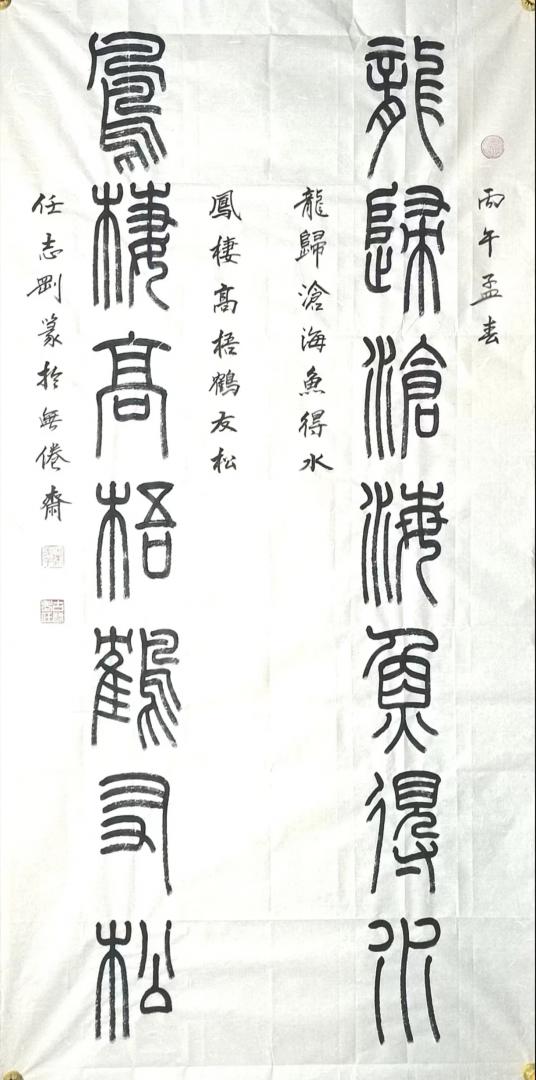 丙午孟春
龍歸滄海魚得水
龍歸滄海魚得水
鳳棲高梧鶴友松
鳳棲高梧鶴友松
任志剛篆於無倦齋